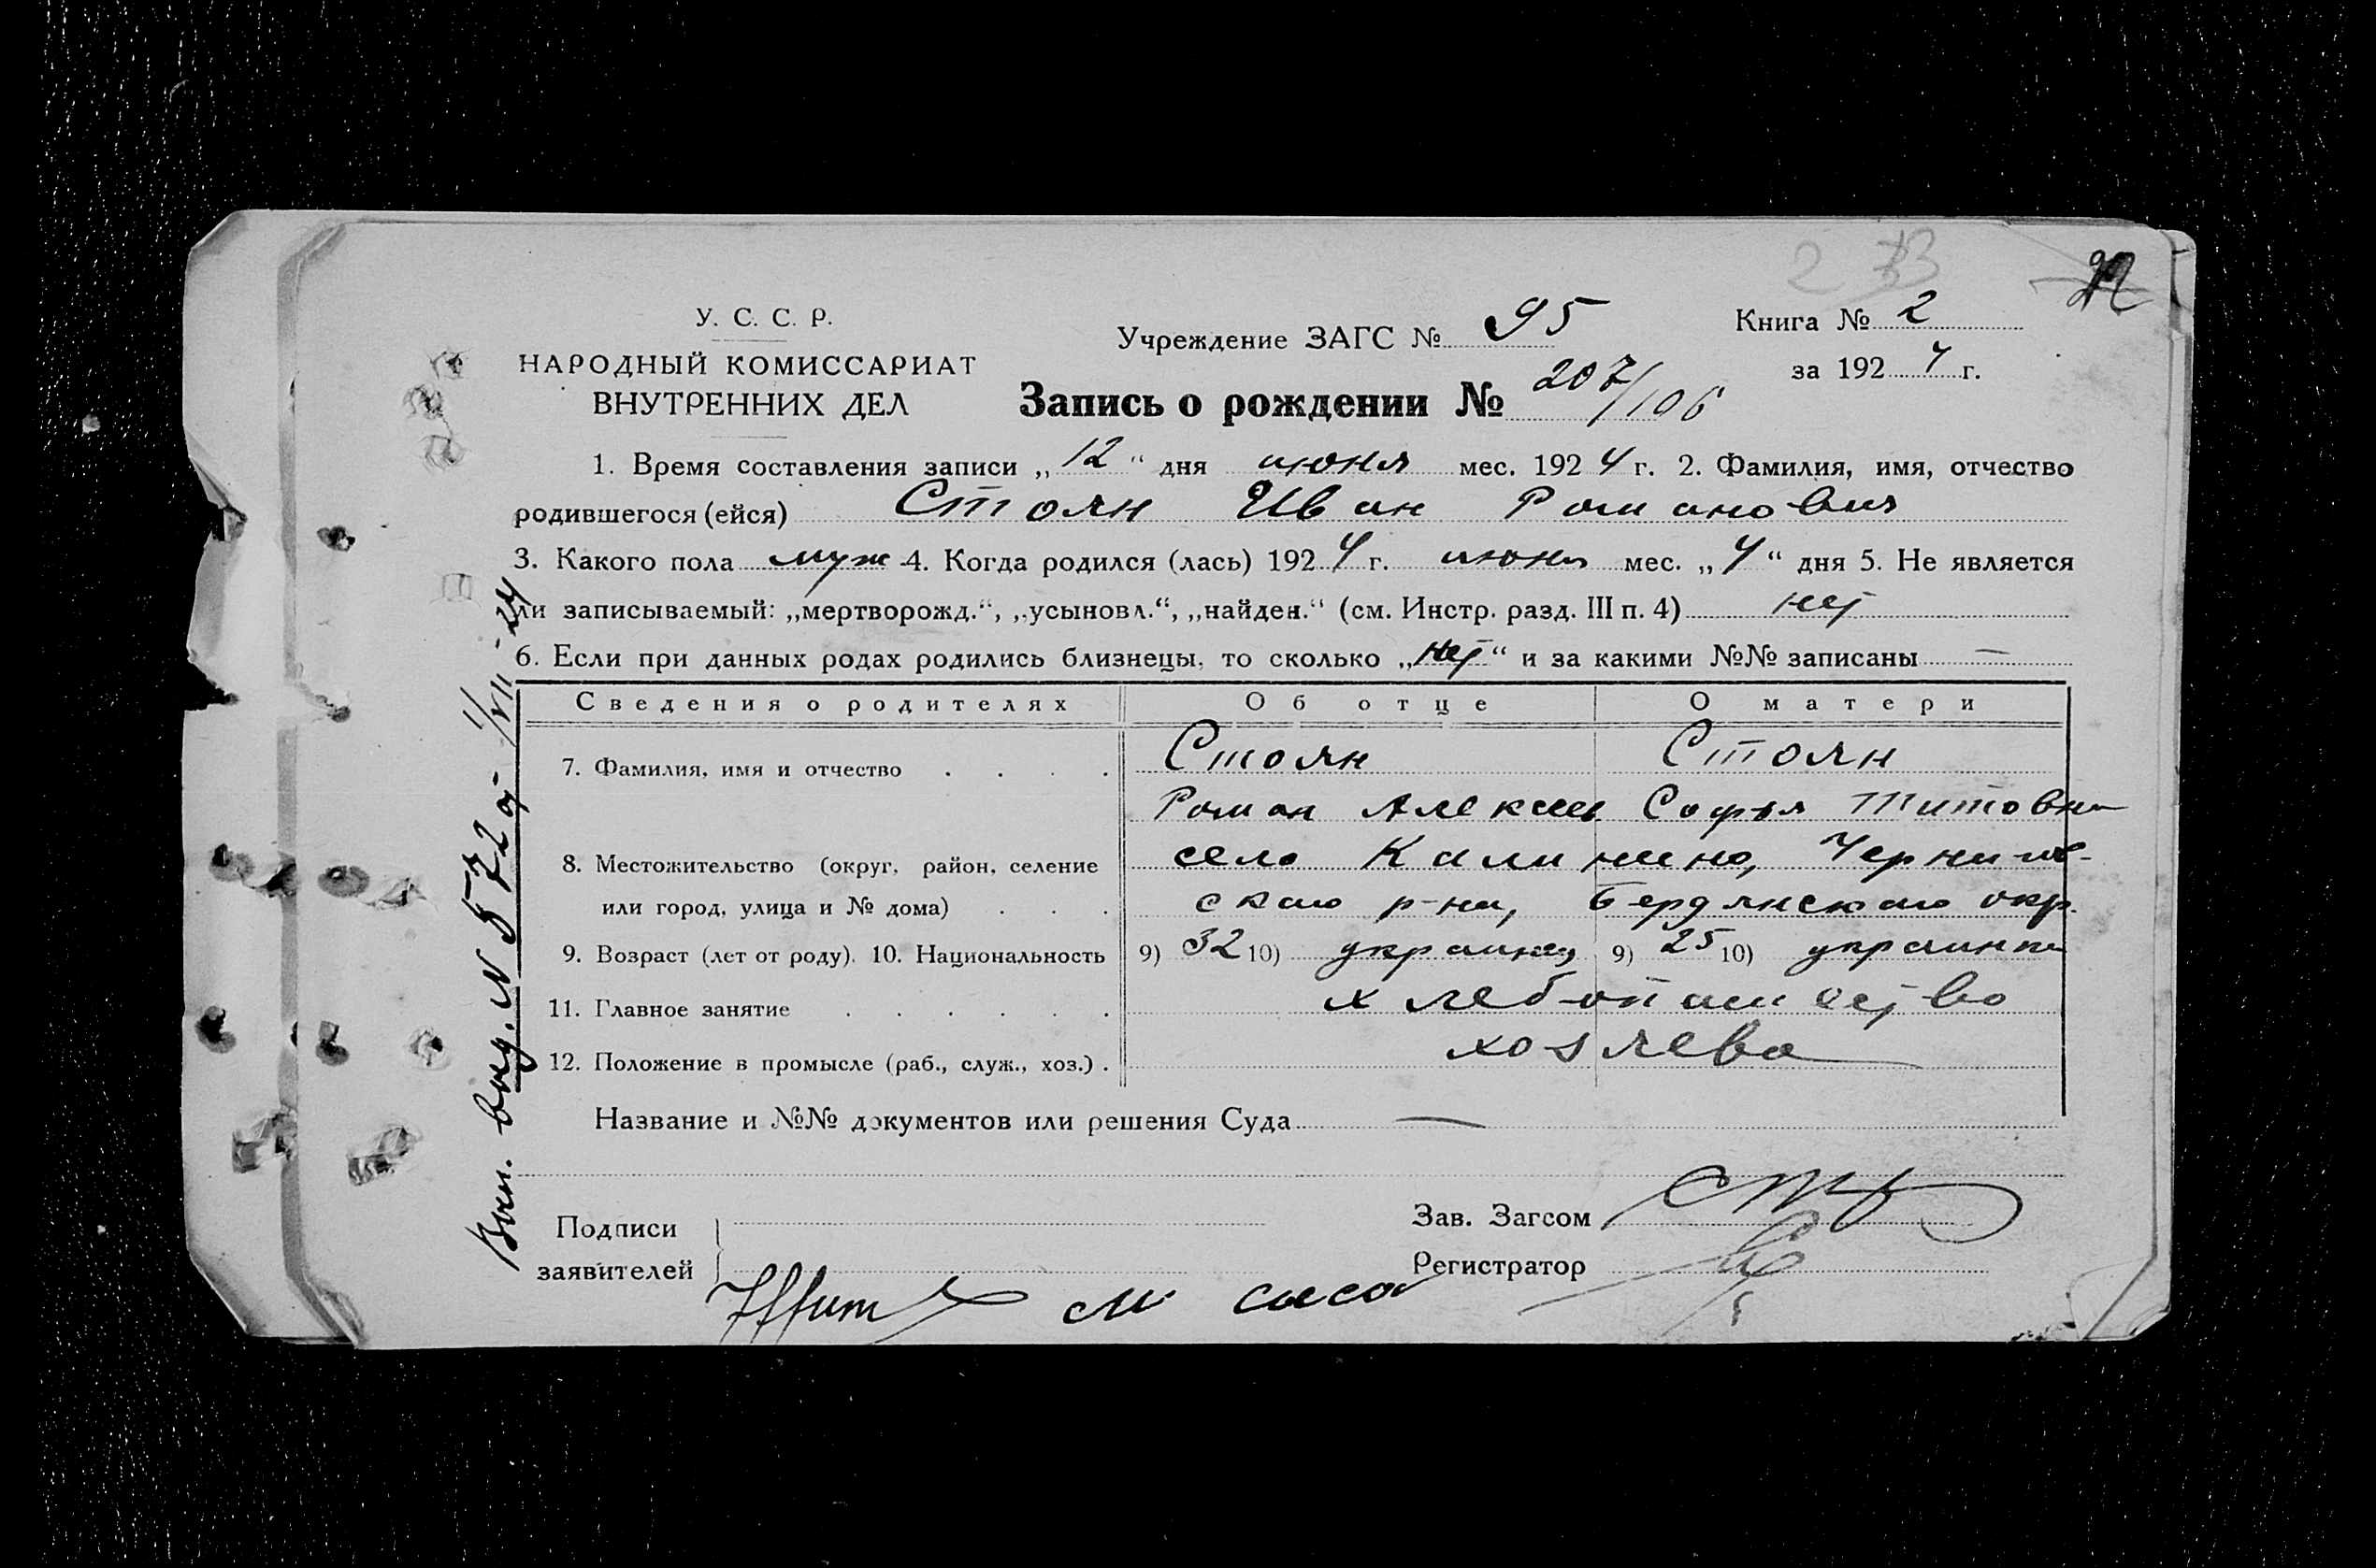 2
У. С. С. Р.
НАРОДНЫЙ КОМИССАРИАТ
ВНУТРЕННИХ ДЕЛ
Учреждение ЗАГС № 95
Книга № 2
за 1924 г.
Запись о рождении № 207/106
1. Время составления записи „12“ дня июня мес. 1924 г. 2. Фамилия, имя, отчество
родившегося (ейся) Стоян Иван Романович
3. Какого пола муж 4. Когда родился (лась) 1924 г. июня мес. „4“ дня 5. Не является
ли записываемый: „мертворожд.“, „усыновл.“, „найден.“ (см. Инстр. разд. III п. 4) нет
6. Если при данных родах родились близнецы, то сколько „нет“ и за какими №№ записаны —
Сведения о родителях Об отце О матери
7. Фамилия, имя и отчество . . . . Стоян Стоян
Роман Алексеев Софья Титовна
8. Местожительство (округ, район, селение село Калинино, Чернигов-
или город, улица и № дома) . . . ского р-на, Бердянского окр.
9. Возраст (лет от роду). 10. Национальность 9) 32 10) украинец 9) 25 10) украинка
11. Главное занятие . . . . . . хлебопашество
12. Положение в промысле (раб., служ., хоз.) . хозяева
Название и №№ документов или решения Суда —
Подписи
заявителей
Зав. Загсом
Регистратор
Вып. выд. № 572 от 1/VII-24